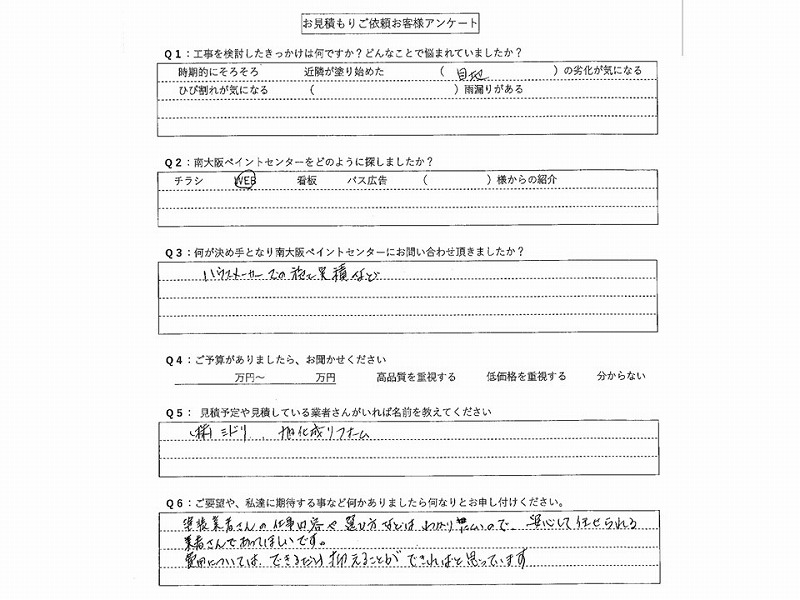 お見積もりご依頼お客様アンケート
Q1：工事を検討したきっかけは何ですか？どんなことで悩まれていましたか？
時期的にそろそろ 近隣が塗り始めた （ 目地 ）の劣化が気になる
ひび割れが気になる （ ）雨漏りがある
Q2：南大阪ペイントセンターをどのように探しましたか？
チラシ WEB 看板 バス広告 （ ）様からの紹介
Q3：何が決め手となり南大阪ペイントセンターにお問い合わせ頂きましたか？
ハウスメーカーでの施工実積など
Q4：ご予算がありましたら、お聞かせください
万円～ 万円 高品質を重視する 低価格を重視する 分からない
Q5： 見積予定や見積している業者さんがいれば名前を教えてください
(株)ミドリ、旭化成リフォーム
Q6：ご要望や、私達に期待する事など何かありましたら何なりとお申し付けください。
塗装業者さんの仕事内容や選び方などはわかり難いので、安心して任せられる
業者さんであってほしいです。
費用については、できるだけ抑えることができればと思っています